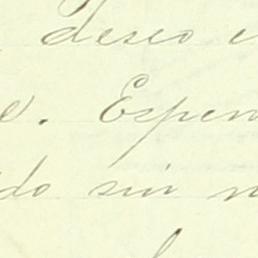 deseo
e. Esper
do sin